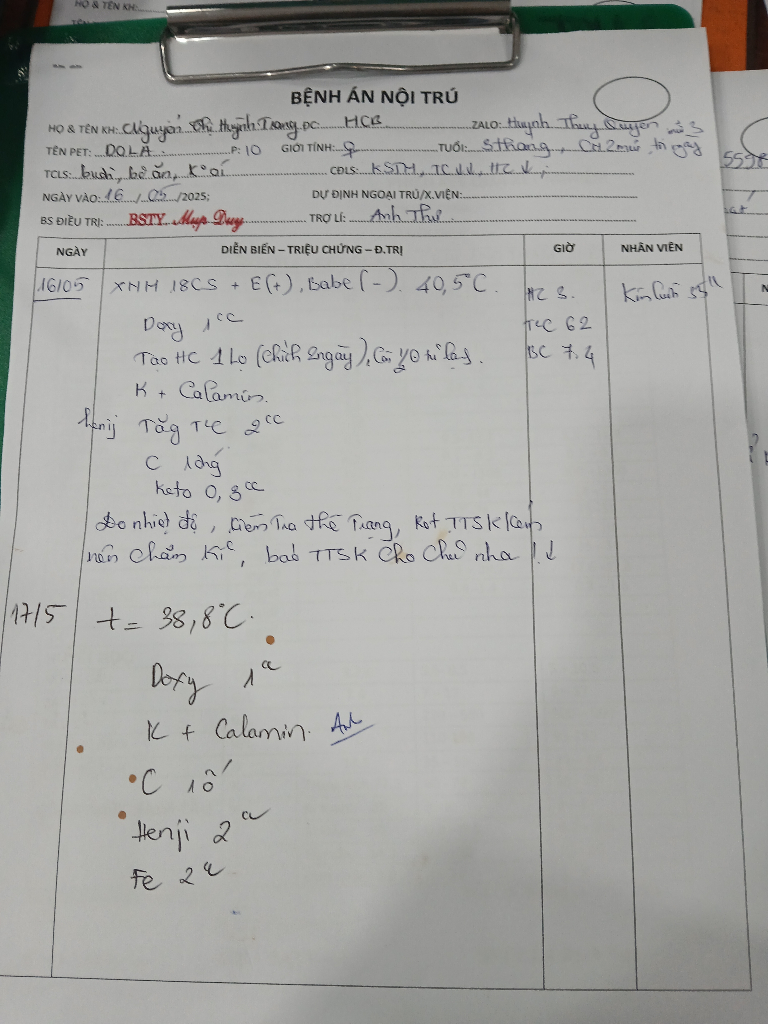 HỌ & TÊN KH:
BỆNH ÁN NỘI TRÚ
HỌ & TÊN KH: Nguyễn Thị Huỳnh Trang ĐC HCB ZALO: Huỳnh Thuy Quyen
TÊN PET: DOLA P: 10 GIỚI TÍNH: ♀ TUỔI: 5 tháng, CN 2 mũi,
TCLS: buồi, bỏ ăn, K° ói CĐLS: KSTM, TC↓↓, HC↓,
NGÀY VÀO: 16/05/2025; DỰ ĐỊNH NGOẠI TRÚ/X.VIỆN:
BS ĐIỀU TRỊ: BSTY. Mup Duy TRỢ LÍ: Anh Thư
NGÀY DIỄN BIẾN – TRIỆU CHỨNG – Đ.TRỊ GIỜ NHÂN VIÊN
16/05 XNM 18CS + E(+), Babe(-). 40,5°C. HC 3.
Doxy 1cc TC 62
Tạo HC 1 Lọ (chích 2ngày), BC 7.4
K + Calamin.
henij Tăg TC 2cc
C 1ống
Keto 0,3cc
Đo nhiệt độ, Kiểm Tra thể Trạng, TTSK
nên chăm Kĩ, báo TTSK cho chủ nha !↓
17/5 t = 38,8°C.
Doxy 1cc
K + Calamin. Anh
C 1ố
Henji 2cc
Fe 2cc
5598